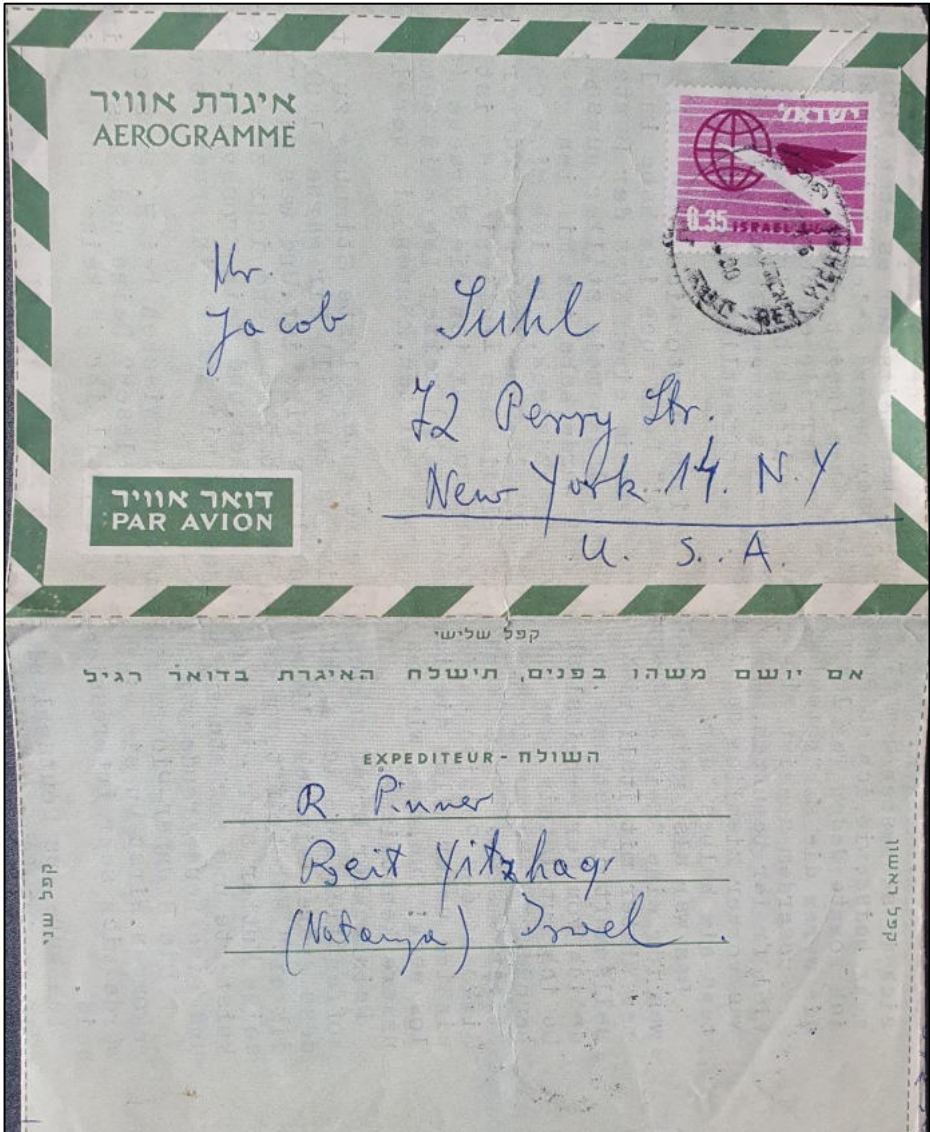 איגרת אוויר
AEROGRAMME
ישראל
0.35 ISRAEL
BET YICHAK
Mr.
Jacob Suhl
72 Perry Str.
New York 14. N.Y
U. S. A.
דואר אוויר
PAR AVION
קפל שלישי
אם יושם משהו בפנים, תישלח האיגרת בדואר רגיל
EXPEDITEUR - השולח
R. Pinner
Beit Yitzhaq
(Natanya) Israel.
קפל שני
קפל ראשון